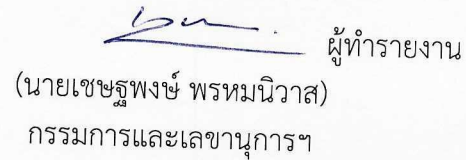 ผู้ทำรายงาน
(นายเชษฐพงษ์ พรหมนิวาส)
กรรมการและเลขานุการฯ